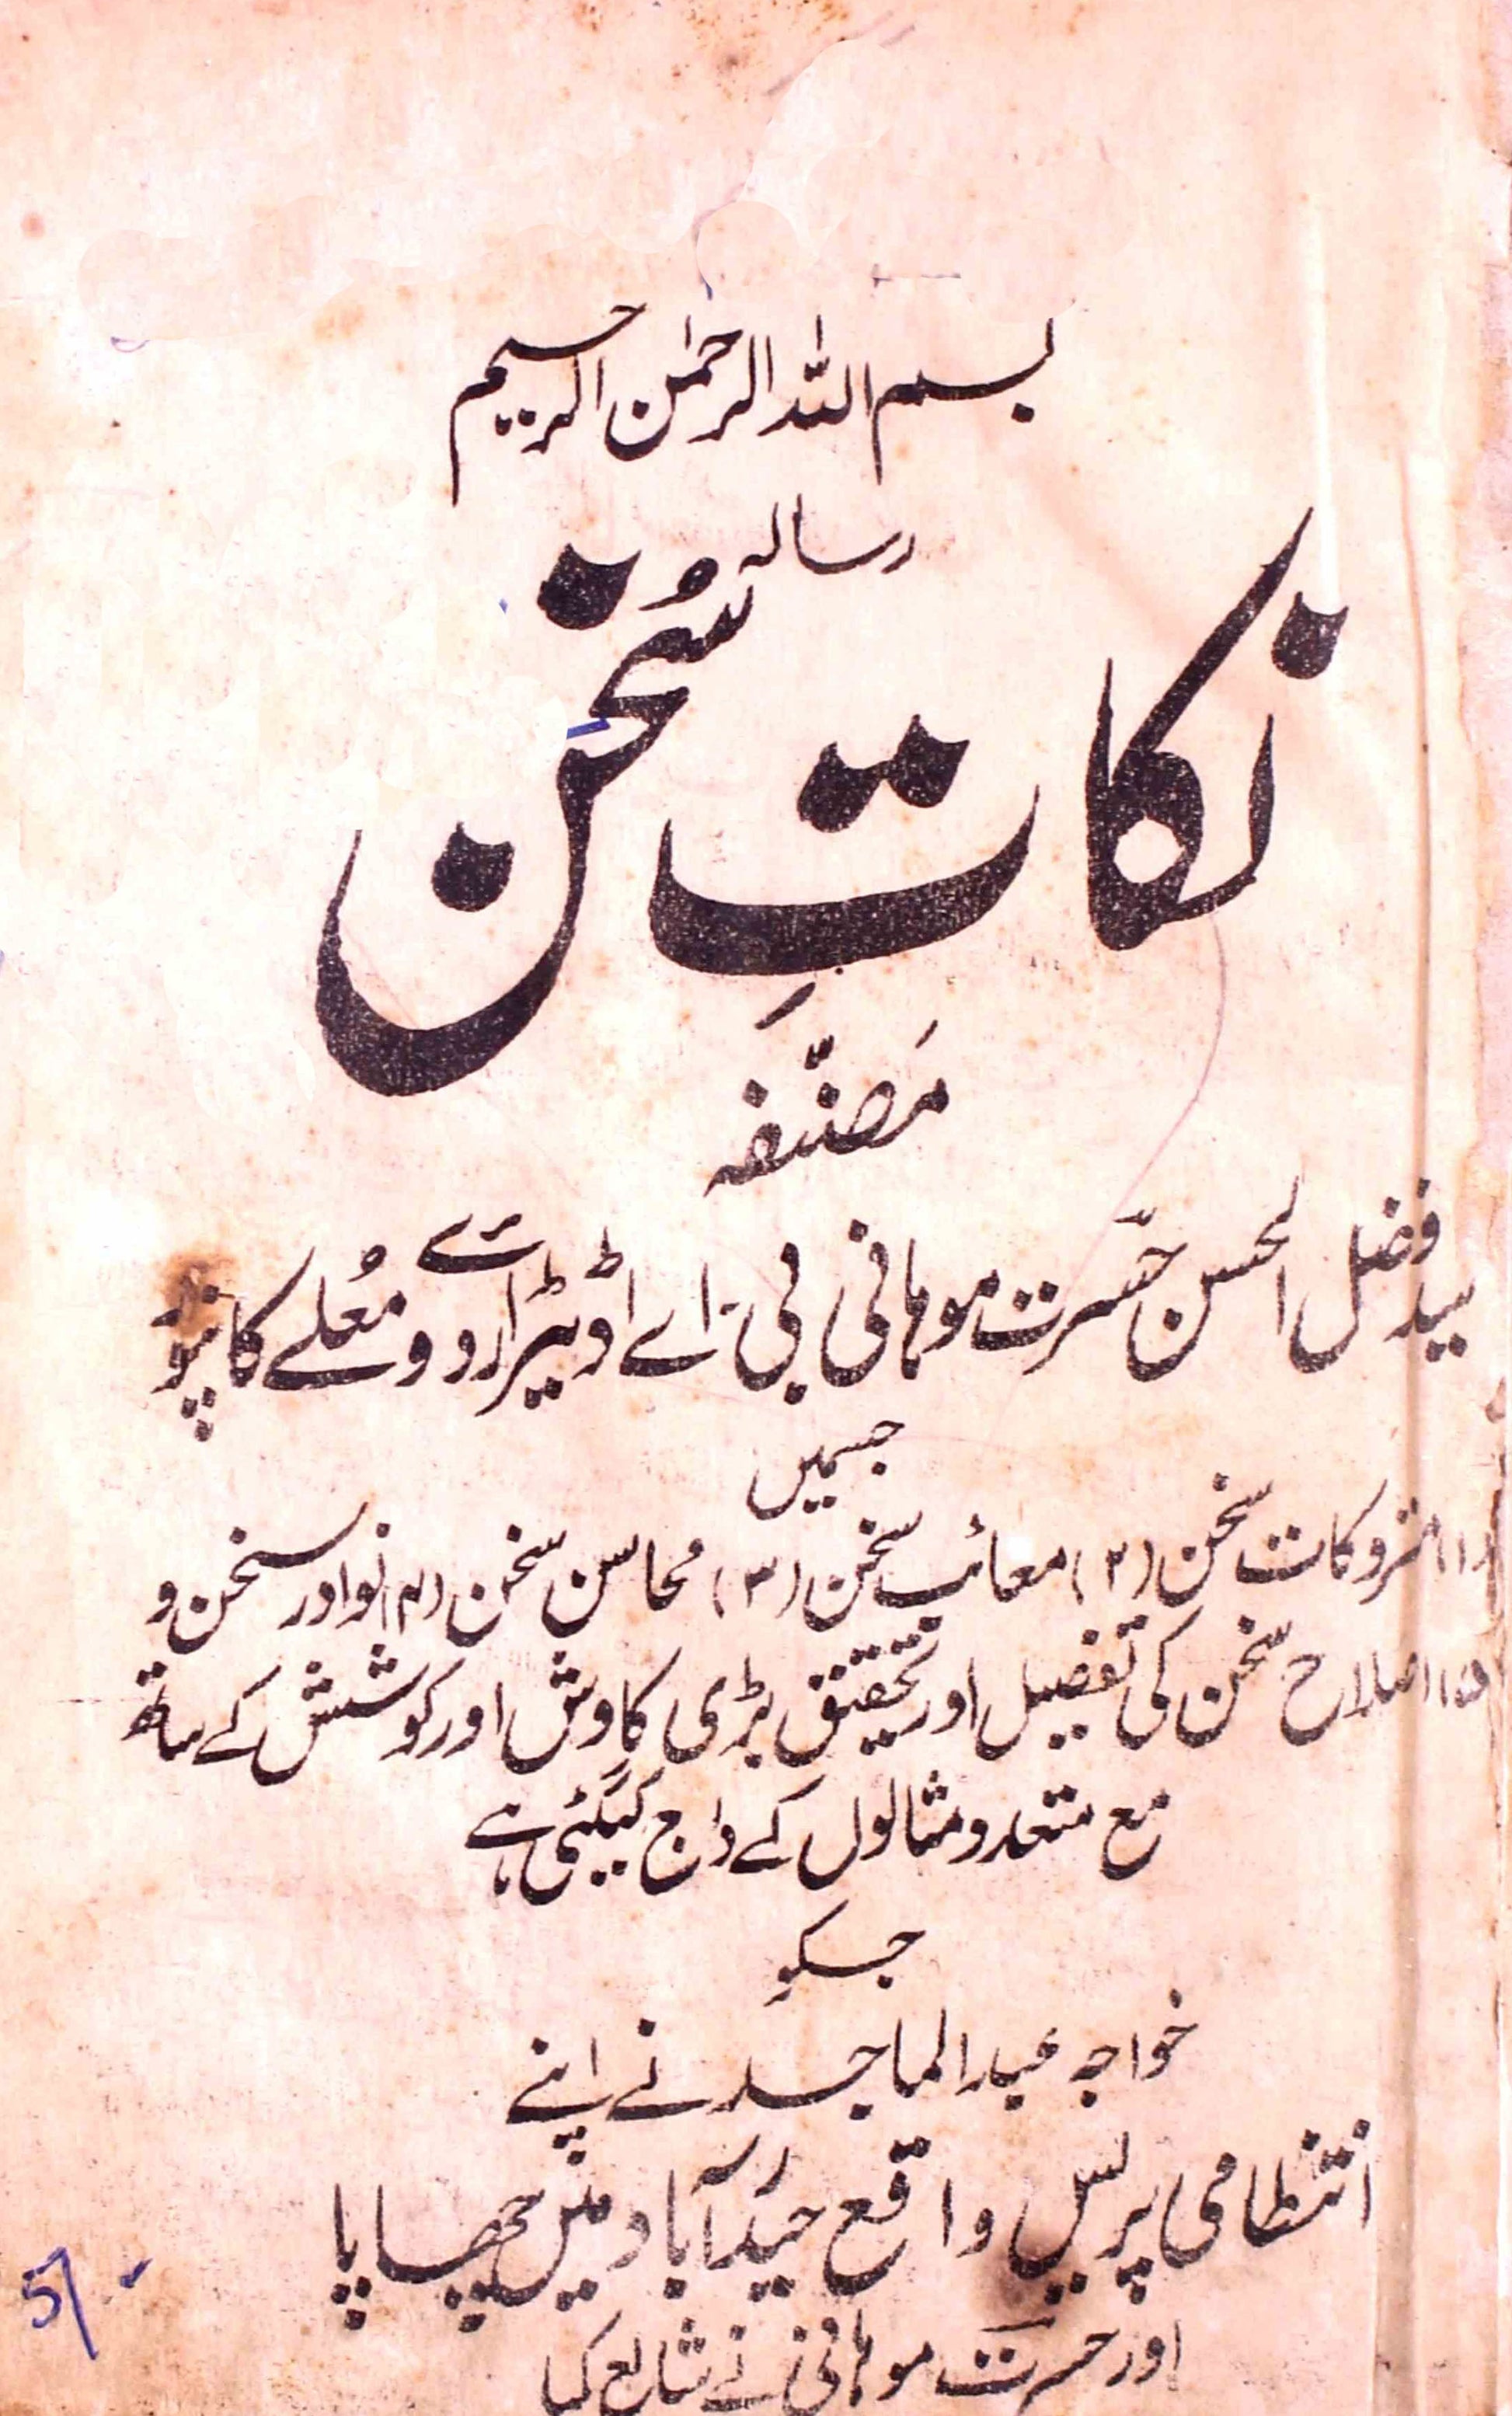 بسم اللہ الرحمٰن الرحیم
رسالہ
نکاتِ سُخن
مَصنّفہ
سید فضل الحسن حسّرت موہانی بی۔ اے اڈیٹر اردوئے معُلے کانپور
جسمیں
(۱) متروکات سخن (۲) معائب سخن (۳) محاسن سخن (۴) نوادر سخن و
(۵) اصلاح سخن کی تفصیل اور تحقیق بڑی کاوش اور کوشش کے ساتھ
مع متعدد مثالوں کے درج کیگئی ہے
جسکو
خواجہ عبدالماجد نے اپنے
انتظامی پریس واقع حیدرآباد میں چھاپا
اور حسرت موہانی نے شائع کیا
5/-